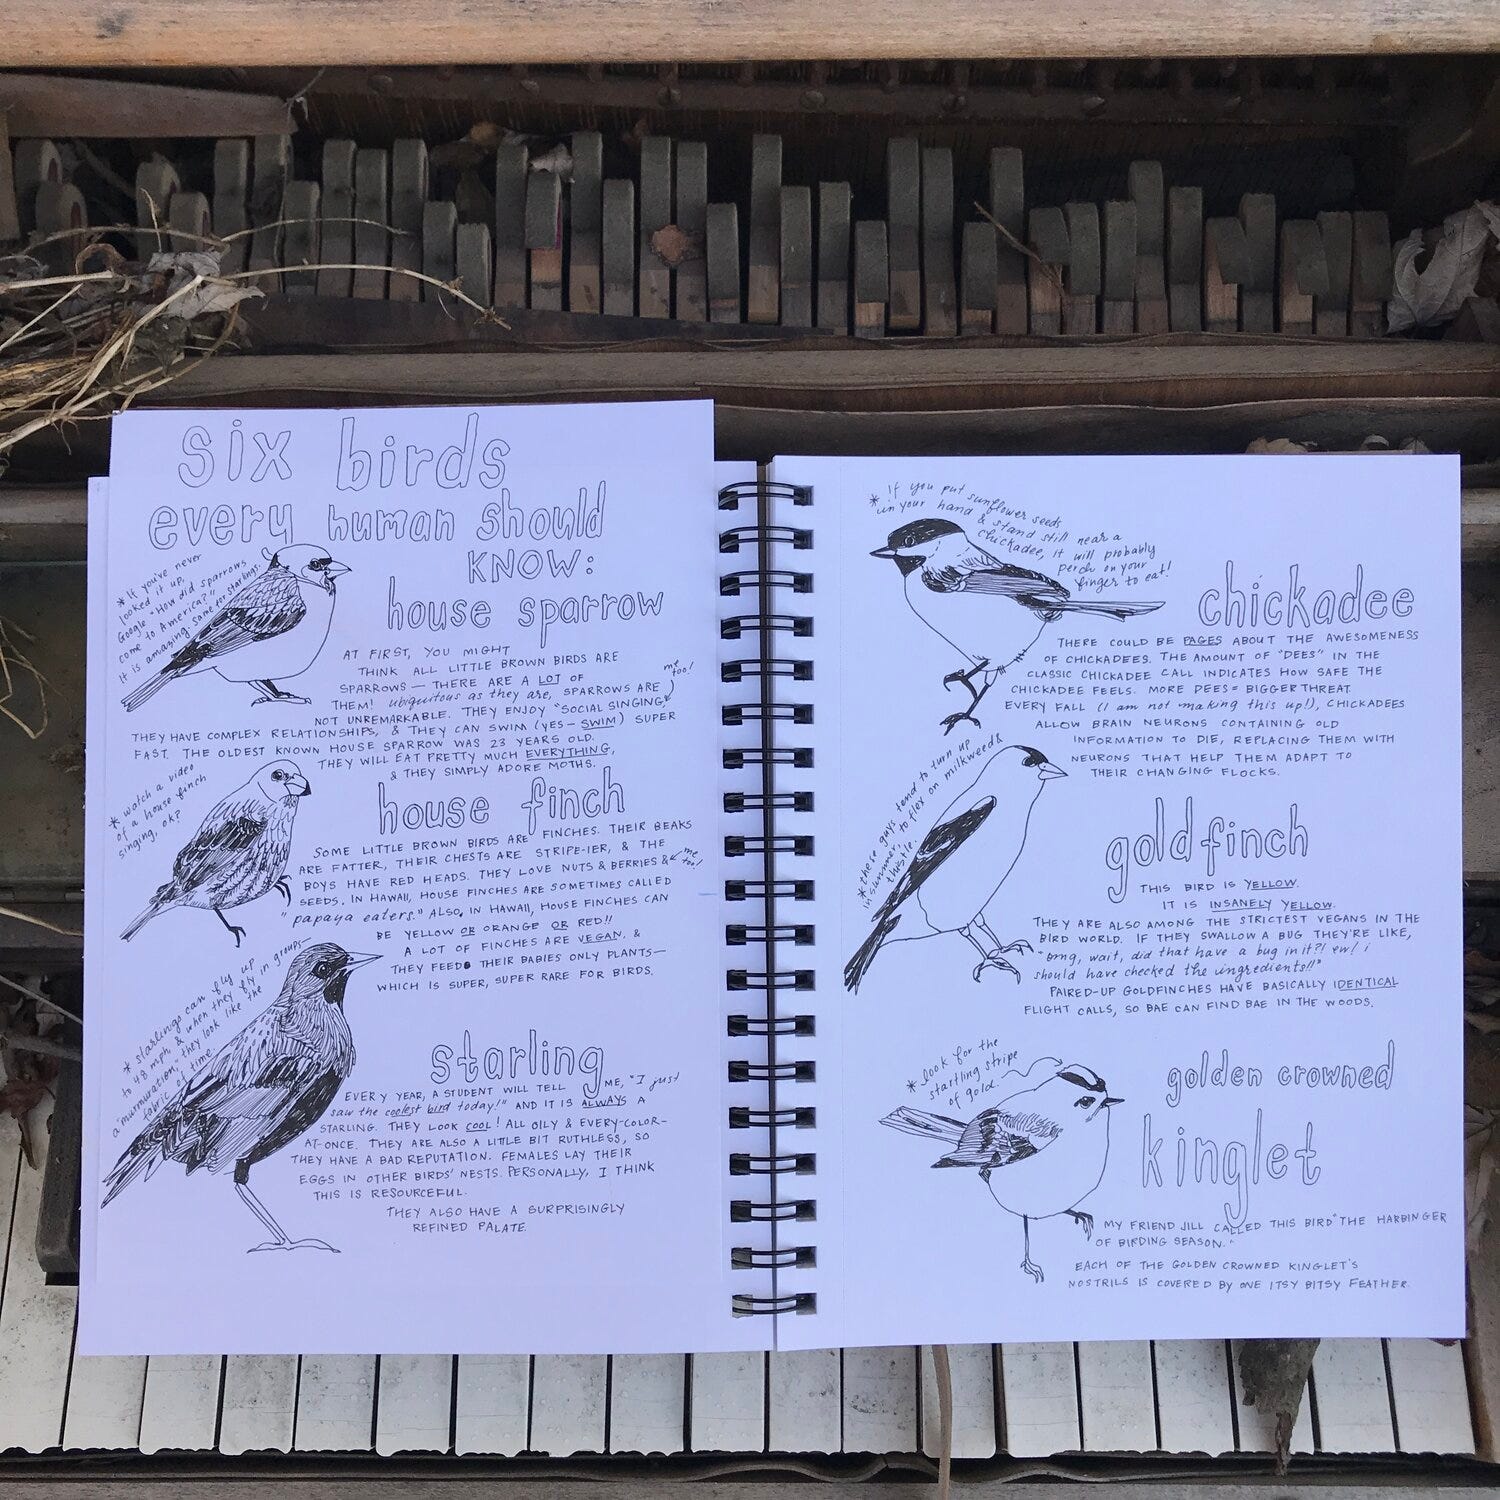 six birds
every human should
KNOW:
* If you've never
looked it up,
Google "How did sparrows
come to America?"
It is amazing. Same for starlings.
house sparrow
AT FIRST, YOU MIGHT
THINK ALL LITTLE BROWN BIRDS ARE
SPARROWS — THERE ARE A LOT OF
THEM! ubiquitous as they are, SPARROWS ARE
NOT UNREMARKABLE. THEY ENJOY "SOCIAL SINGING,"
me too!
THEY HAVE COMPLEX RELATIONSHIPS, & THEY CAN SWIM (YES — SWIM) SUPER
FAST. THE OLDEST KNOWN HOUSE SPARROW WAS 23 YEARS OLD.
THEY WILL EAT PRETTY MUCH EVERYTHING,
& THEY SIMPLY ADORE MOTHS.
* watch a video
of a house finch
singing, ok?
house finch
SOME LITTLE BROWN BIRDS ARE FINCHES. THEIR BEAKS
ARE FATTER, THEIR CHESTS ARE STRIPE-IER, & THE
BOYS HAVE RED HEADS. THEY LOVE NUTS & BERRIES &
me too!
SEEDS. IN HAWAII, HOUSE FINCHES ARE SOMETIMES CALLED
"papaya eaters." ALSO, IN HAWAII, HOUSE FINCHES CAN
BE YELLOW OR ORANGE OR RED!!
A LOT OF FINCHES ARE VEGAN, &
THEY FEED THEIR BABIES ONLY PLANTS—
WHICH IS SUPER, SUPER RARE FOR BIRDS.
* starlings can fly up
to 48 mph, & when they fly in groups—
a "murmuration," they look like the
fabric of time.
starling
EVERY YEAR, A STUDENT WILL TELL ME, "I just
saw the coolest bird today!" AND IT IS ALWAYS A
STARLING. THEY LOOK COOL! ALL OILY & EVERY-COLOR-
AT-ONCE. THEY ARE ALSO A LITTLE BIT RUTHLESS, SO
THEY HAVE A BAD REPUTATION. FEMALES LAY THEIR
EGGS IN OTHER BIRDS' NESTS. PERSONALLY, I THINK
THIS IS RESOURCEFUL.
THEY ALSO HAVE A SURPRISINGLY
REFINED PALATE.
* If you put sunflower seeds
in your hand & stand still near a
chickadee, it will probably
perch on your
finger to eat!
chickadee
THERE COULD BE PAGES ABOUT THE AWESOMENESS
OF CHICKADEES. THE AMOUNT OF "DEES" IN THE
CLASSIC CHICKADEE CALL INDICATES HOW SAFE THE
CHICKADEE FEELS. MORE DEES = BIGGER THREAT.
EVERY FALL (I am not making this up!), CHICKADEES
ALLOW BRAIN NEURONS CONTAINING OLD
INFORMATION TO DIE, REPLACING THEM WITH
NEURONS THAT HELP THEM ADAPT TO
THEIR CHANGING FLOCKS.
* these guys tend to turn up
in summer, to flex on milkweed &
thistle.
goldfinch
THIS BIRD IS YELLOW.
IT IS INSANELY YELLOW.
THEY ARE ALSO AMONG THE STRICTEST VEGANS IN THE
BIRD WORLD. IF THEY SWALLOW A BUG THEY'RE LIKE,
"omg, wait, did that have a bug in it?! ew! i
should have checked the ingredients!!"
PAIRED-UP GOLDFINCHES HAVE BASICALLY IDENTICAL
FLIGHT CALLS, SO BAE CAN FIND BAE IN THE WOODS.
* look for the
startling stripe
of gold.
golden crowned
kinglet
MY FRIEND JILL CALLED THIS BIRD "THE HARBINGER
OF BIRDING SEASON."
EACH OF THE GOLDEN CROWNED KINGLET'S
NOSTRILS IS COVERED BY ONE ITSY BITSY FEATHER.